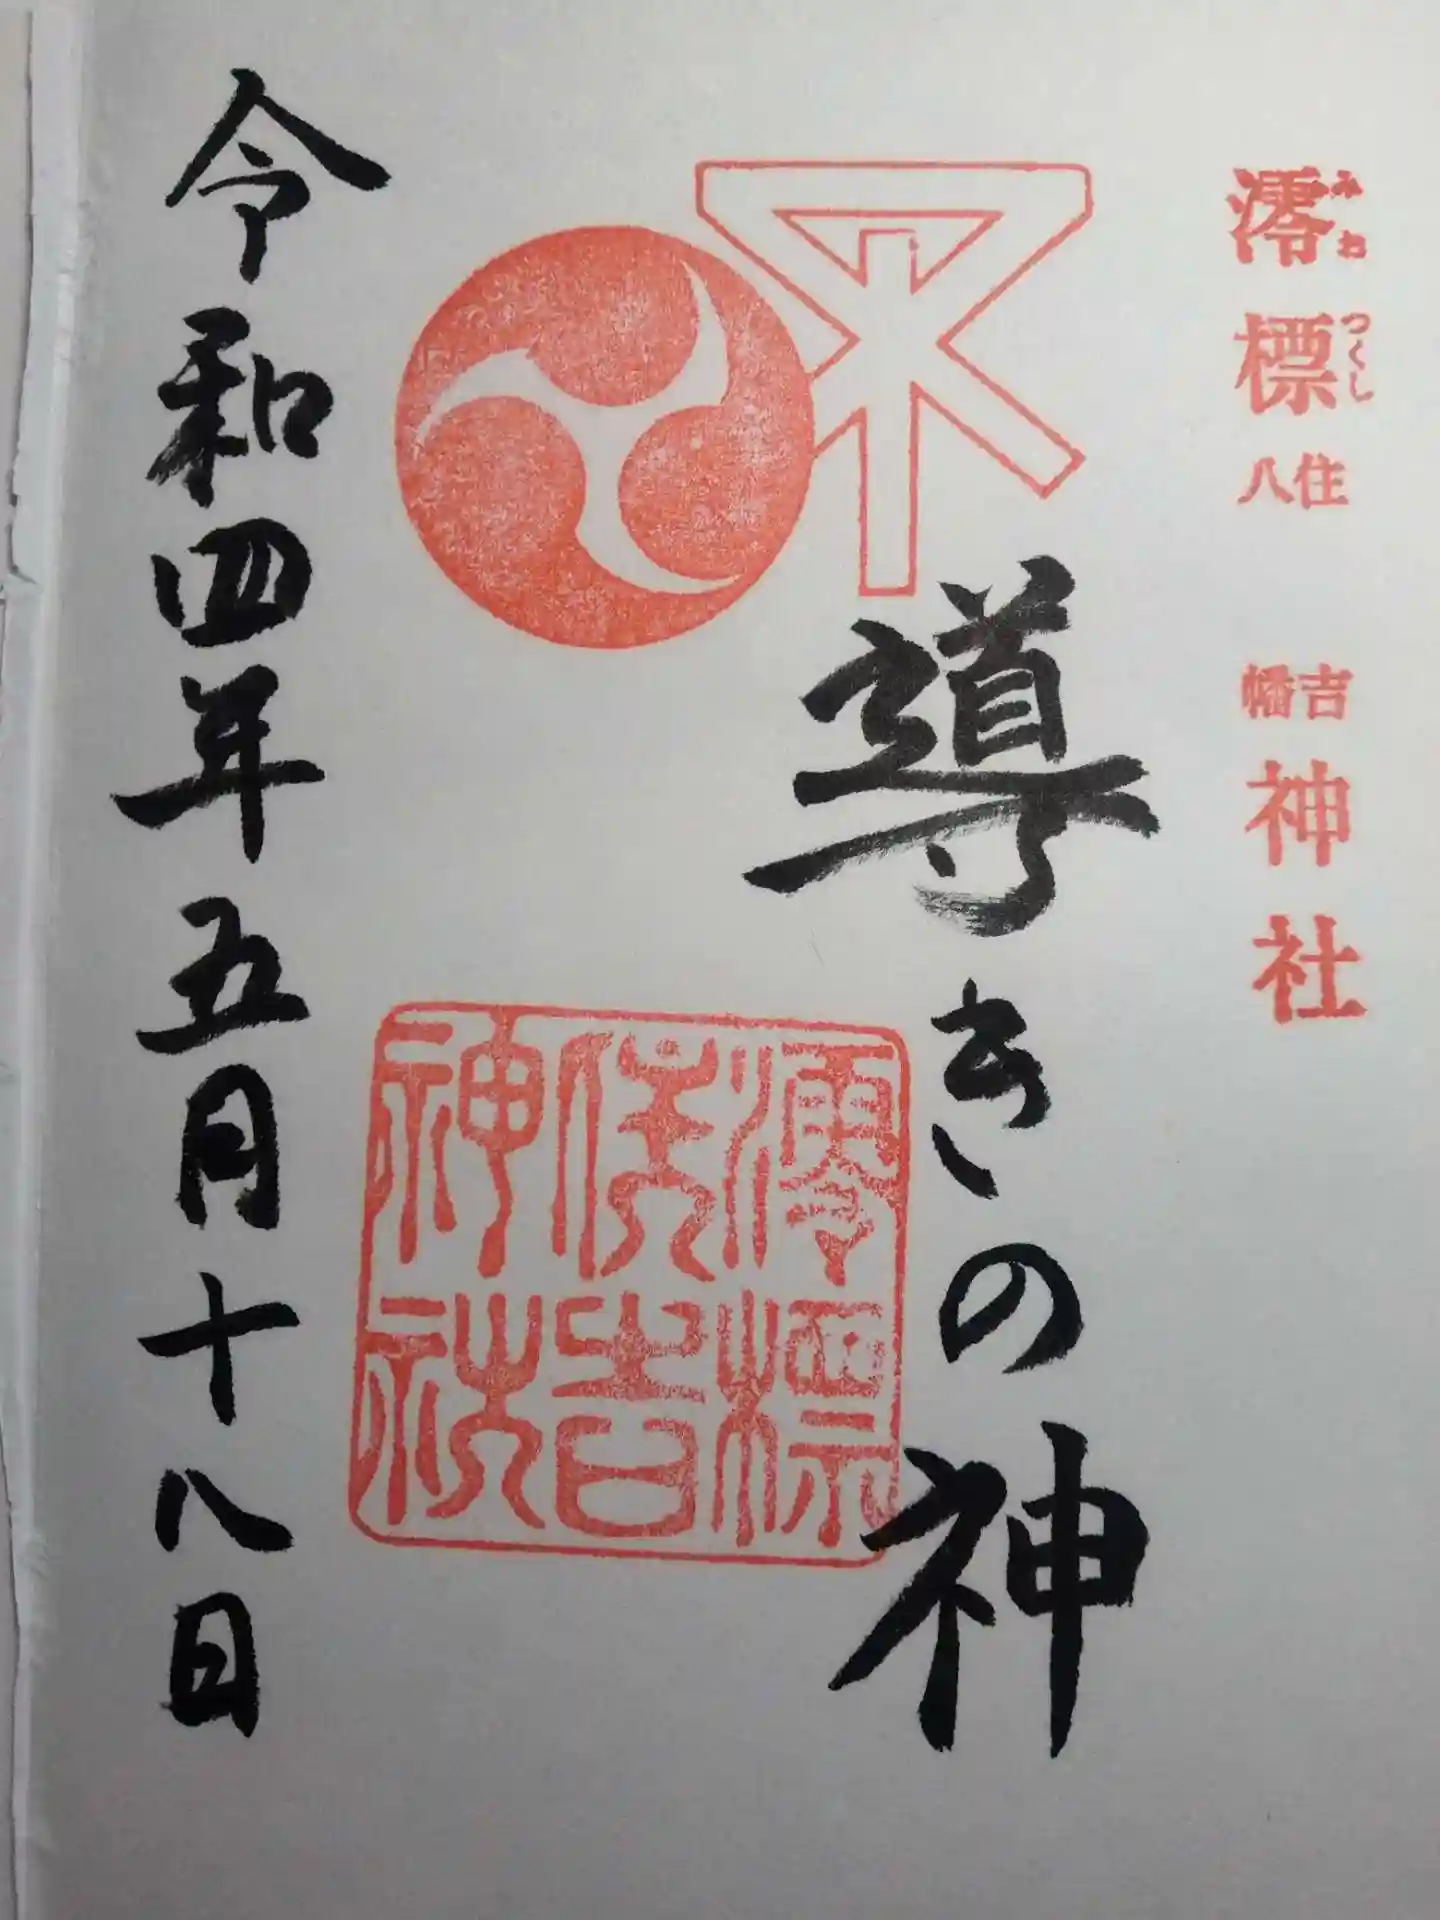 澪標住吉八幡神社
みおつくし
導きの神
澪標住吉神社
令和四年五月十八日